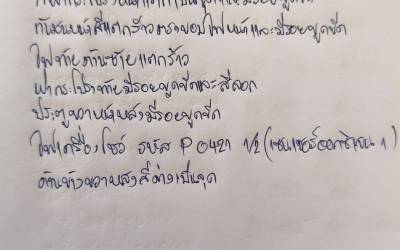 กันชนหน้าสีแตกร้าว ขอบไฟหน้าและมีรอยขูดขีด
ไฟท้ายด้านซ้ายแตกร้าว
ฝากระโปรงท้ายมีรอยขูดขีดและสีลอก
ประตูขวาบานหลังมีรอยขูดขีด
ไฟเครื่องโชว์ รหัส P0421 1/2 (เซนเซอร์ออกซิเจน 1)
ด้านข้างขวาหลังสีด่างเป็นจุด